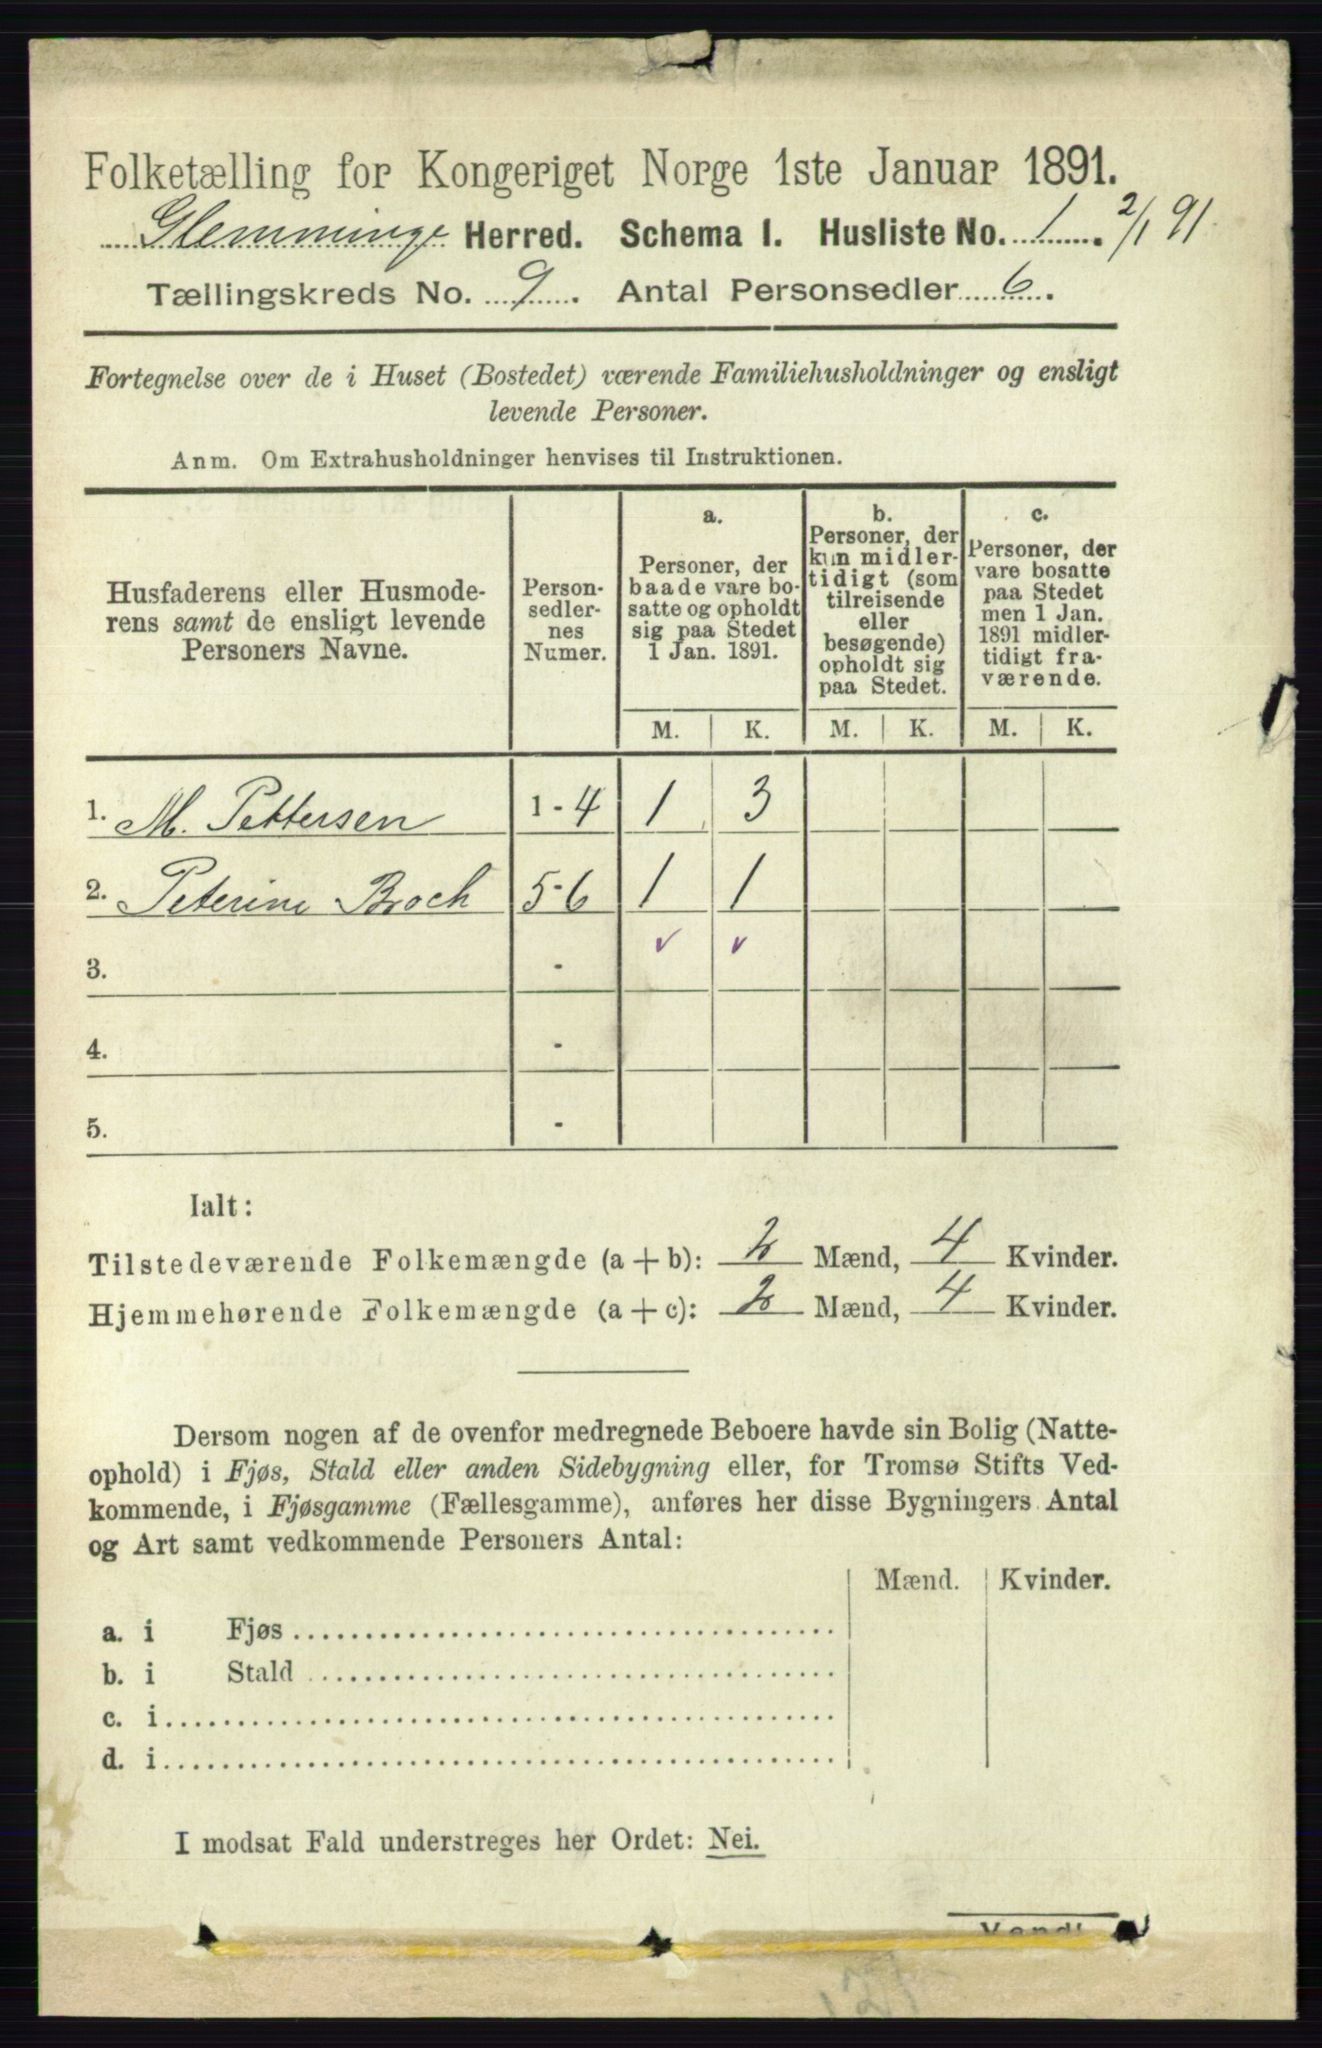 Folketælling for Kongeriget Norge 1ste Januar 1891.
Glemminge Herred. Schema I. Husliste No. 1. 2/1 91
Tællingskreds No. 9. Antal Personsedler 6.
Fortegnelse over de i Huset (Bostedet) værende Familiehusholdninger og ensligt
levende Personer.
Anm. Om Extrahusholdninger henvises til Instruktionen.
Husfaderens eller Husmode-
rens samt de ensligt levende
Personers Navne.
Person-
sedler-
nes
Numer.
a.
Personer, der
baade vare bo-
satte og opholdt
sig paa Stedet
1 Jan. 1891.
b.
Personer, der
kun midler-
tidigt (som
tilreisende
eller
besøgende)
opholdt sig
paa Stedet.
c.
Personer, der
vare bosatte
paa Stedet
men 1 Jan.
1891 midler-
tidigt fra-
værende.
M. K. M. K. M. K.
1. M. Pettersen 1 - 4 1 3
2. Peterine Broch 5-6 1 1
3. -
4. -
5. -
Ialt:
Tilstedeværende Folkemængde (a + b): 2 Mænd, 4 Kvinder.
Hjemmehørende Folkemængde (a + c): 2 Mænd, 4 Kvinder.
Dersom nogen af de ovenfor medregnede Beboere havde sin Bolig (Natte-
ophold) i Fjøs, Stald eller anden Sidebygning eller, for Tromsø Stifts Ved-
kommende, i Fjøsgamme (Fællesgamme), anføres her disse Bygningers Antal
og Art samt vedkommende Personers Antal:
Mænd. Kvinder.
a. i Fjøs
b. i Stald
c. i
d. i
I modsat Fald understreges her Ordet: Nei.
Vend!